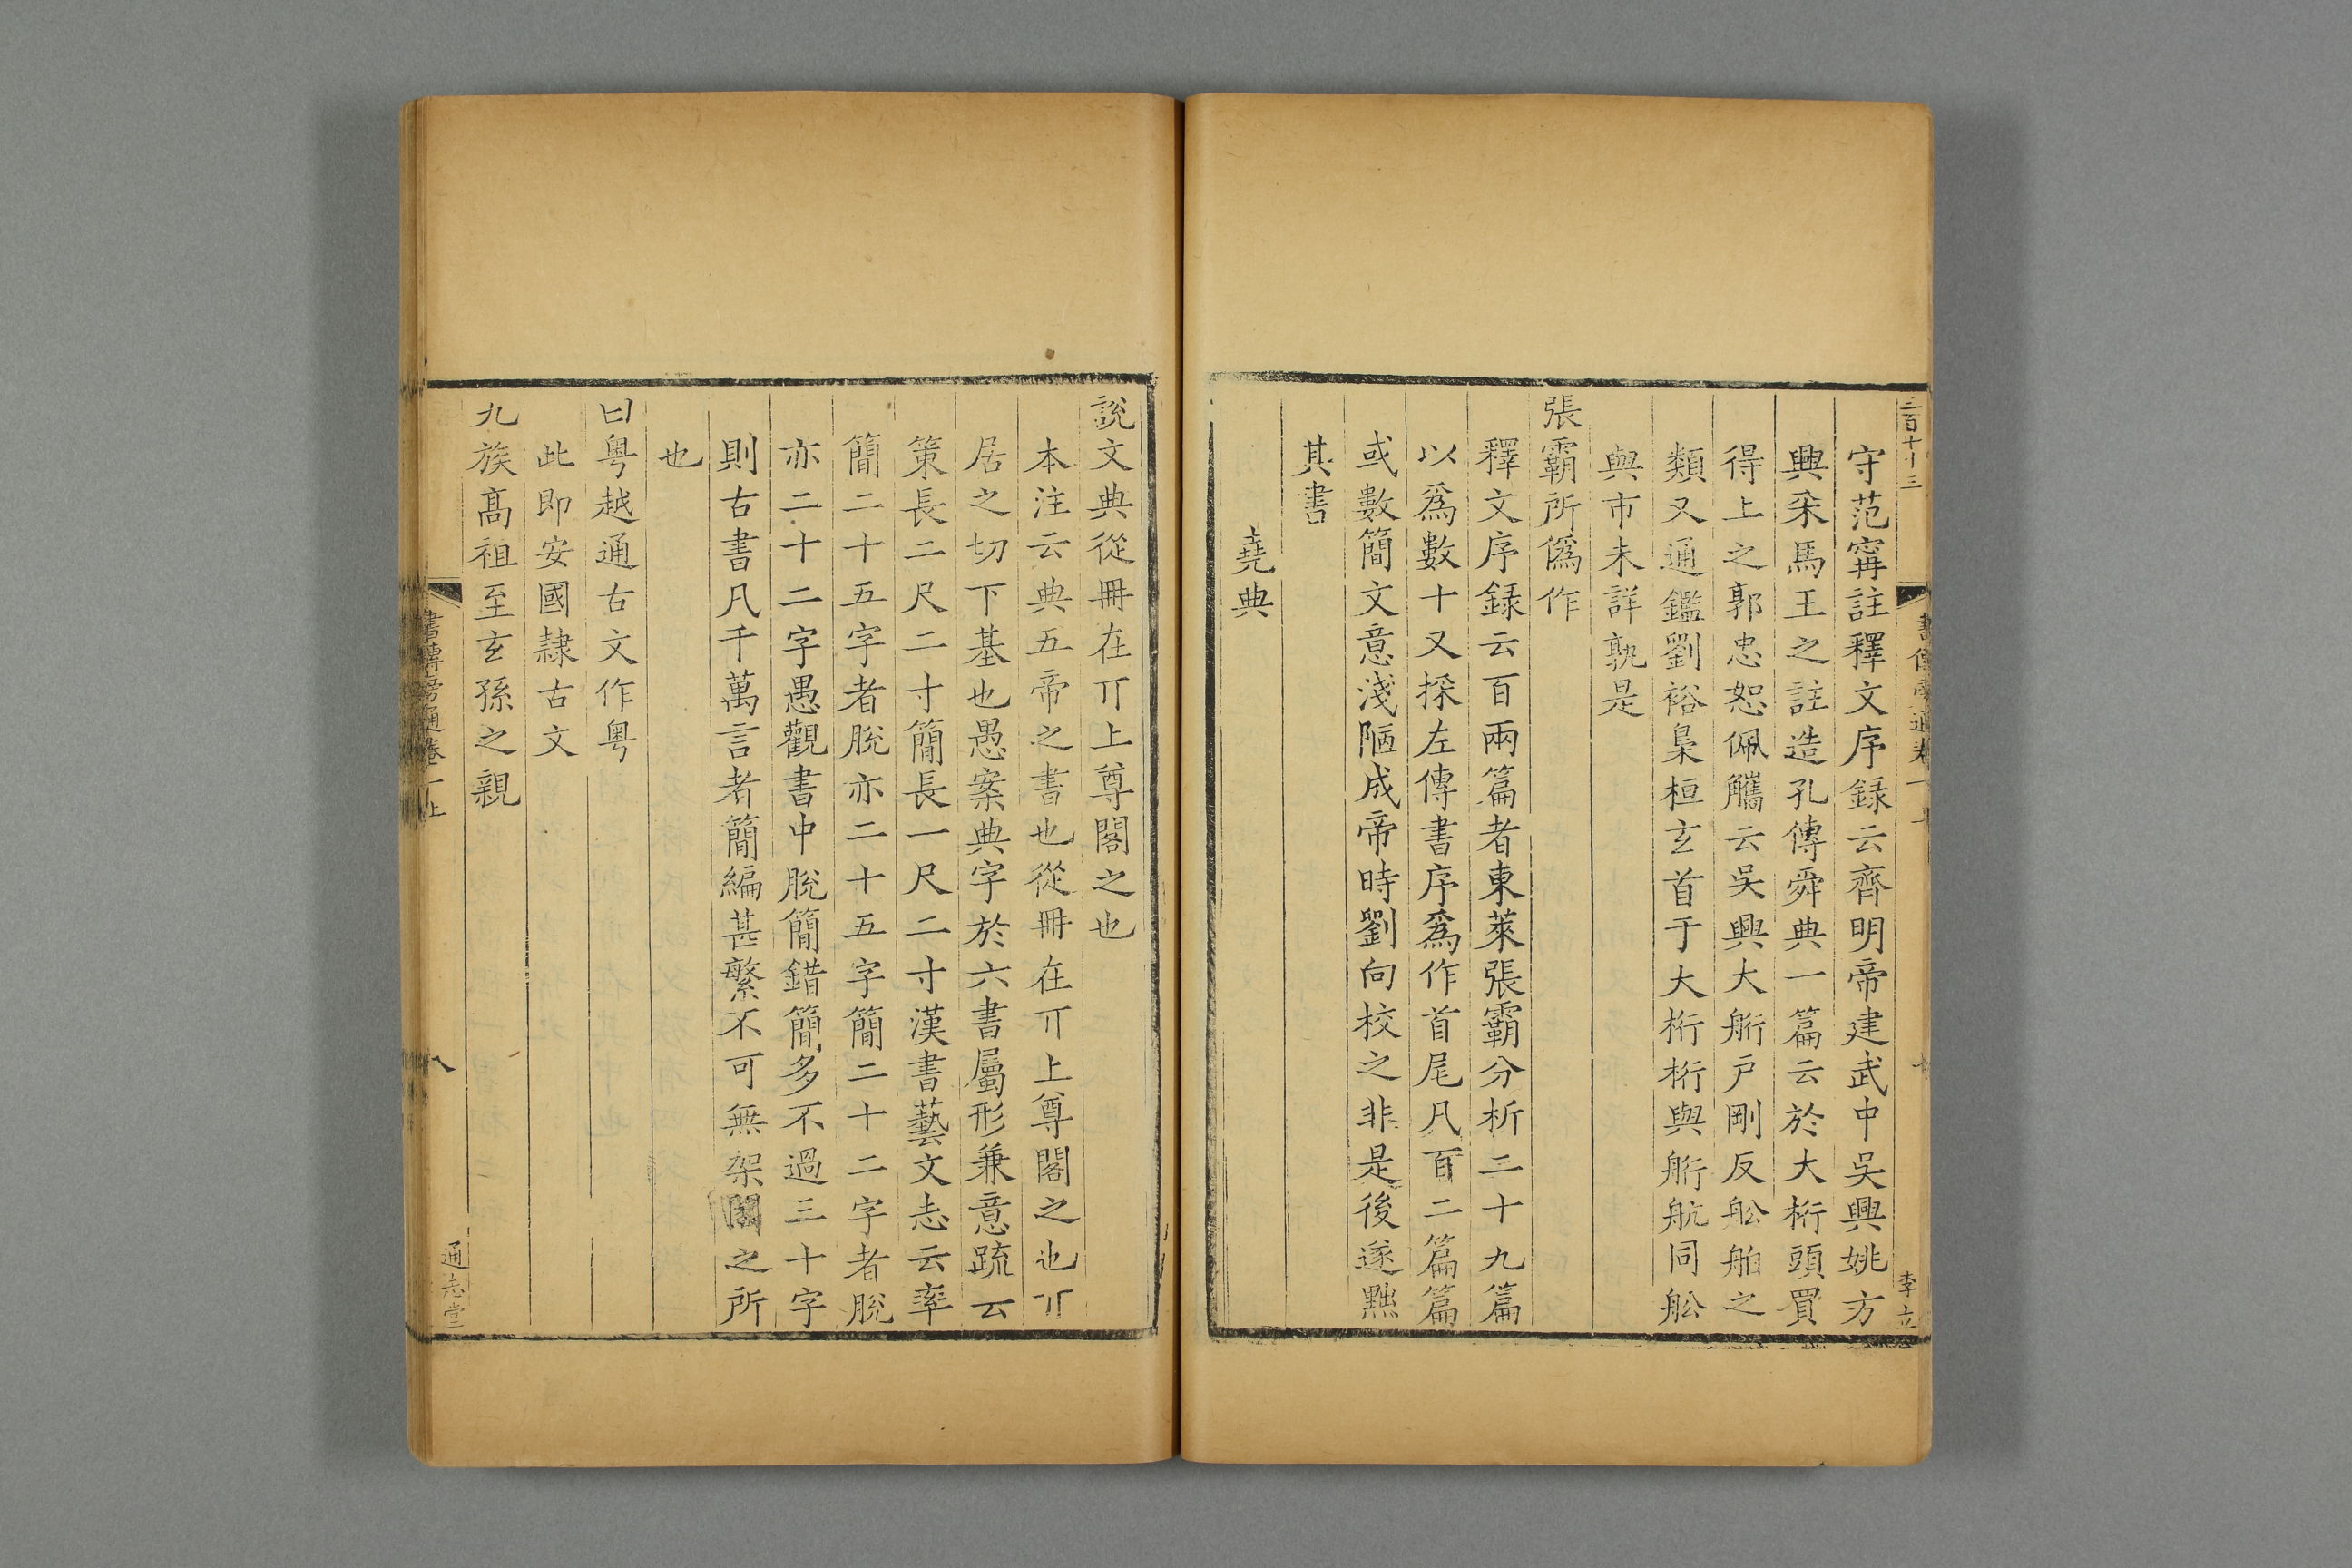 守范寗註釋文序録云齊明帝建武中吳興姚方
興釆馬王之註造孔傳舜典一篇云於大桁頭買
得上之郭忠恕佩觿云吳興大䑪戸剛反舩舶之
類又通鑑劉裕梟桓玄首于大桁桁與䑪航同舩
與市未詳孰是
張霸所僞作
釋文序録云百兩篇者東萊張霸分析二十九篇
以爲數十又採左傳書序爲作首尾凡百二篇篇
或數簡文意淺陋成帝時劉向校之非是後遂黜
其書
堯典
說文典從冊在丌上尊閣之也
本注云典五帝之書也從冊在丌上尊閣之也丌
居之切下基也愚案典字於六書屬形兼意疏云
策長二尺二寸簡長一尺二寸漢書藝文志云率
簡二十五字者脫亦二十五字簡二十二字者脫
亦二十二字愚觀書中脫簡錯簡多不過三十字
則古書凡千萬言者簡編甚繁不可無架閣之所
也
曰粤越通古文作粤
此即安國隷古文
九族髙祖至玄孫之親
書傳旁通卷一上
八
通志堂
李立